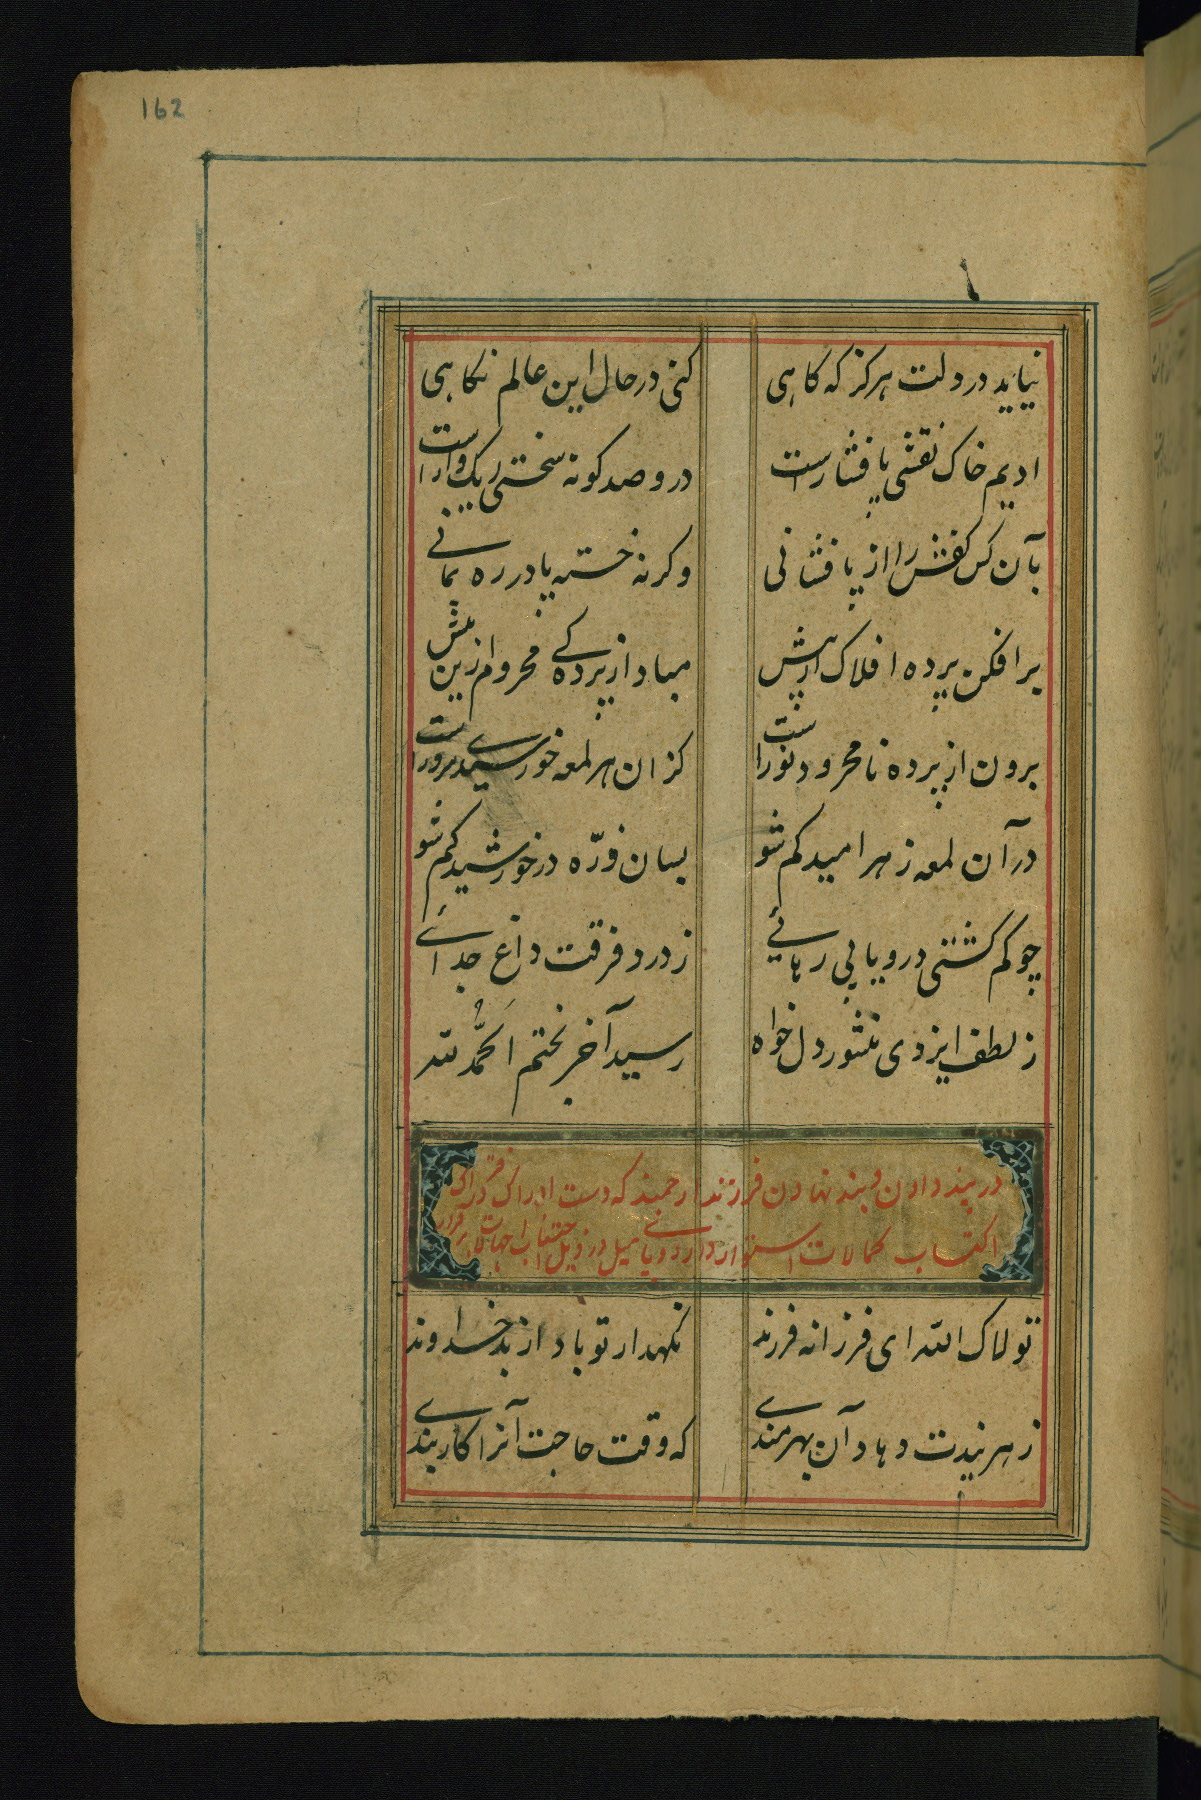 162
نیاید در دلت هرگز که گاهی
کنی در حال این عالم نگاهی
ادیم خاک نقشی پا فشارست
درو صد گونه سختی ریگ وارست
بآن کس کفش را از پا فشانی
وگرنه خسته پا در ره بمانی
برافکن پرده افلاک از پیش
مباد از پرده کی محروم ازین بیش
برون از پرده نامحرود نوراست
کزان هر لمعه خورشید
در آن لمعه ز هر امید کم شو
بسان ذرّه در خورشید کم شو
چو کم گشتی درو یابی رهائی
ز درد فرقت و داغ جدائے
ز لطف ایزدی منشور دل خواه
رسید آخر بختم اَلحَمْدُ لله
در پند دادن و بند نهادن فرزند ارجمند که دست ادراکش در
اکتساب کمالات استوار دارد و پای میل در ذیل اجتناب از جهالات برقرار
تولاک الله ای فرزانه فرزند
نگهدار تو باد از بد خداوند
ز هر پندت دهاد آن بهرمندی
که وقت حاجت آنرا کار بندی